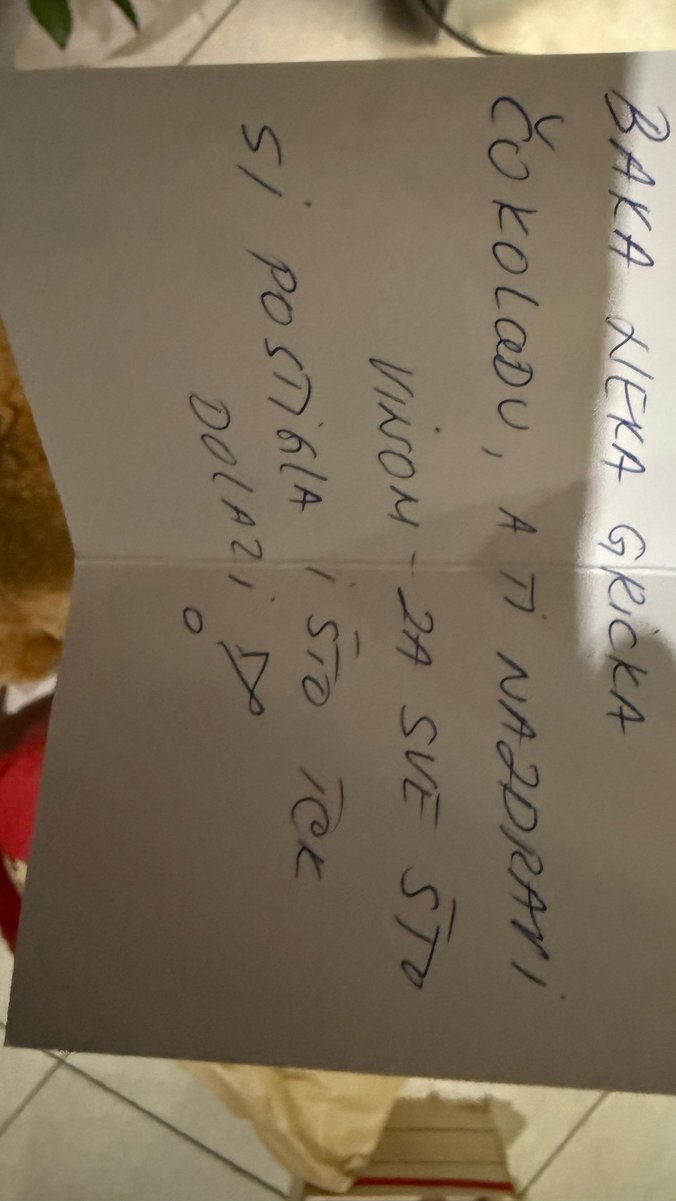 BAKA NEKA GRICKA
ČOKOLADU, A TI NAZDRAVI
VINOM - ZA SVE ŠTO
SI POSTIGLA I ŠTO TEK
DOLAZI!